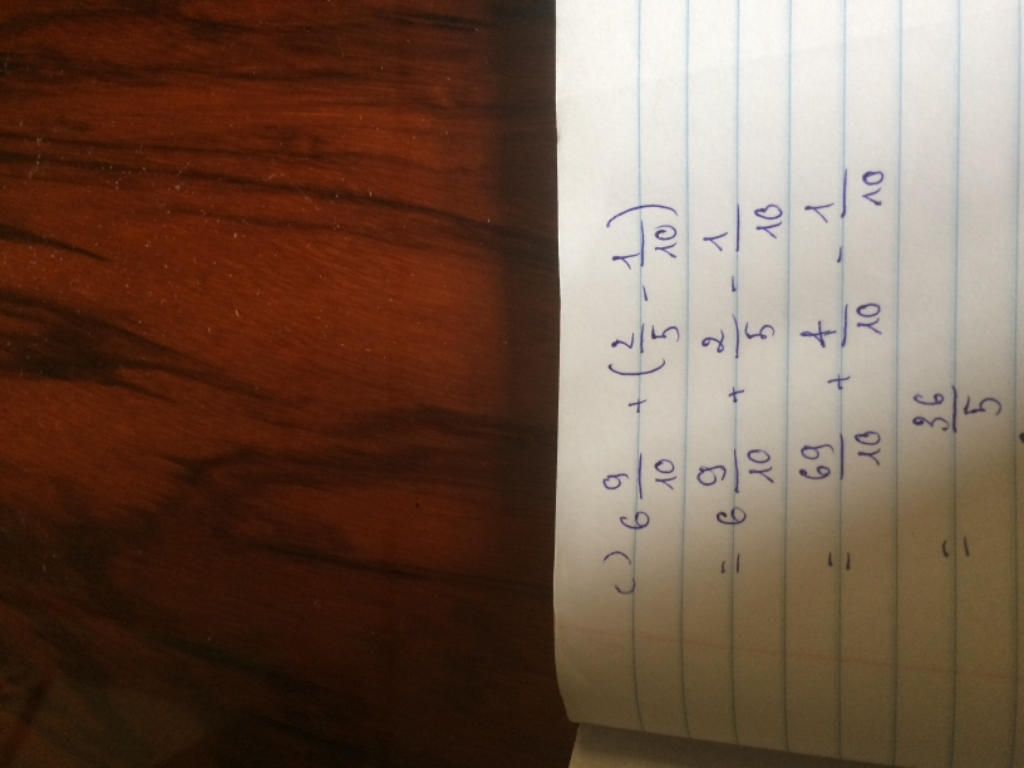 c) 6 9/10 + (2/5 - 1/10)
= 6 9/10 + 2/5 - 1/10
= 69/10 + 4/10 - 1/10
= 36/5